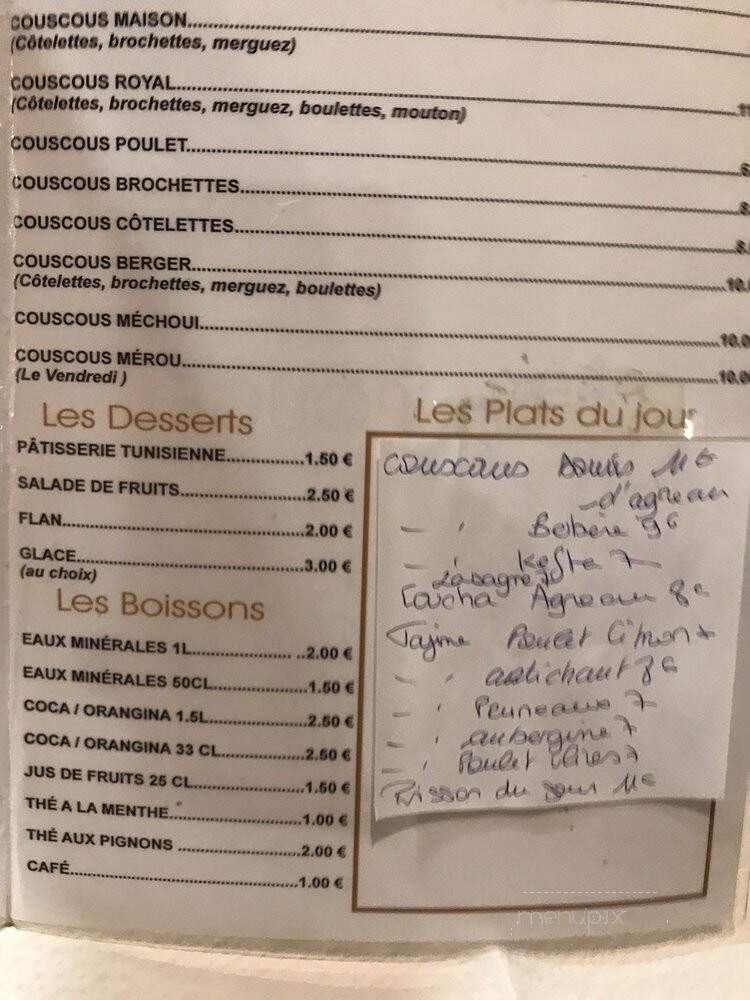 COUSCOUS MAISON
(Côtelettes, brochettes, merguez)
COUSCOUS ROYAL
(Côtelettes, brochettes, merguez, boulettes, mouton)
COUSCOUS POULET
COUSCOUS BROCHETTES
COUSCOUS CÔTELETTES
COUSCOUS BERGER
(Côtelettes, brochettes, merguez, boulettes)
COUSCOUS MÉCHOUI
COUSCOUS MÉROU
(Le Vendredi )
Les Desserts
PÂTISSERIE TUNISIENNE 1.50 €
SALADE DE FRUITS 2.50 €
FLAN 2.00 €
GLACE 3.00 €
(au choix)
Les Boissons
EAUX MINÉRALES 1L 2.00 €
EAUX MINÉRALES 50CL 1.50 €
COCA / ORANGINA 1.5L 2.50 €
COCA / ORANGINA 33 CL 2.50 €
JUS DE FRUITS 25 CL 1.50 €
THÉ A LA MENTHE 1.00 €
THÉ AUX PIGNONS 2.00 €
CAFÉ 1.00 €
Les Plats du jour
Couscous 11€
d'agneau
9€
7
Lasagne
Agneau 8€
Tajine Poulet Citron 7
artichaut 8€
Pruneaux 7
aubergine 7
Poulet 7
du jour 11€
menupix